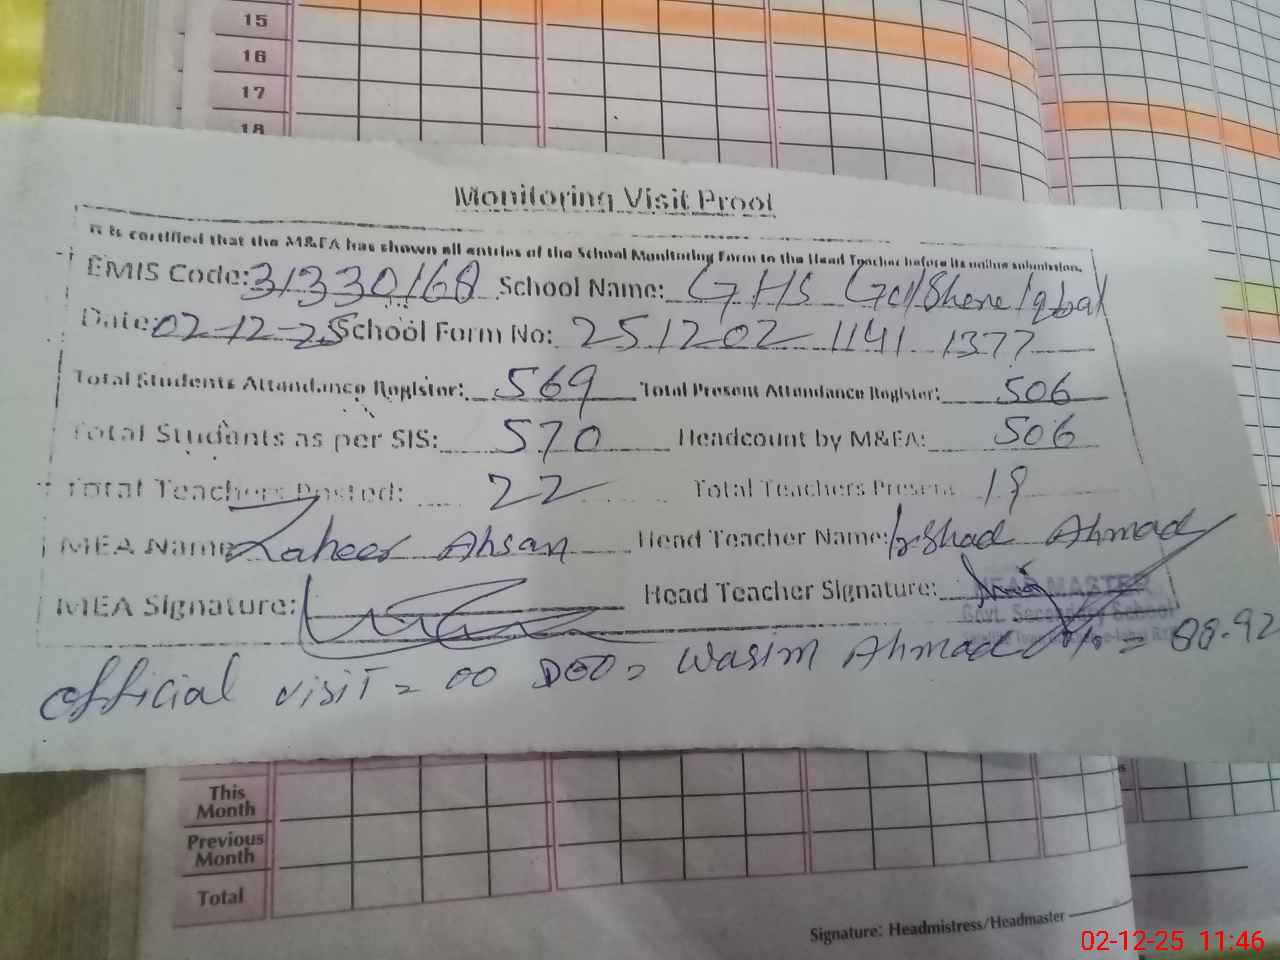 15
16
17
18
Monitoring Visit Proof
It is certified that the M&EA has shown all entries of the School Monitoring Form to the Head Teacher before its online submission.
EMIS Code: 31330168 School Name: GHS Gulshene Iqbal
Date: 02-12-25 School Form No: 251202 1141 1377
Total Students Attandance Register: 569 Total Present Attendance Register: 506
Total Students as per SIS: 570 Headcount by M&EA: 506
Total Teachers Posted: 22 Total Teachers Present 19
MEA Name Zaheer Ahsan Head Teacher Name: Irshad Ahmad
MEA Signature: Head Teacher Signature:
HEAD MASTER
Govt. Secondary School
official visit = 00 DEO = Wasim Ahmad % = 88.92
This Month
Previous Month
Total
Signature: Headmistress/Headmaster
02-12-25 11:46